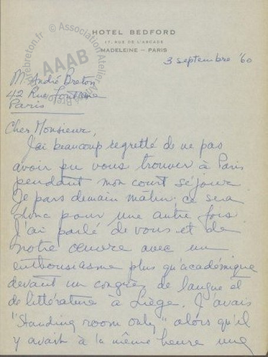 HOTEL BEDFORD
17, RUE DE L'ARCADE
MADELEINE - PARIS
3 septembre '60
Mr André Breton
42 Rue Fontaine
Paris
Cher Monsieur,
J'ai beaucoup regretté de ne pas
avoir pu vous trouver à Paris
pendant mon court séjour.
Je pars demain matin, ce sera
donc pour une autre fois.
J'ai parlé de vous et de
votre œuvre avec un
enthousiasme plus qu'académique
devant un congrès de langue et
de littérature à Liège. J'avais
"Standing room only" alors qu'il
y avait à la même heure une
© Association Atelier André Breton
AAAB